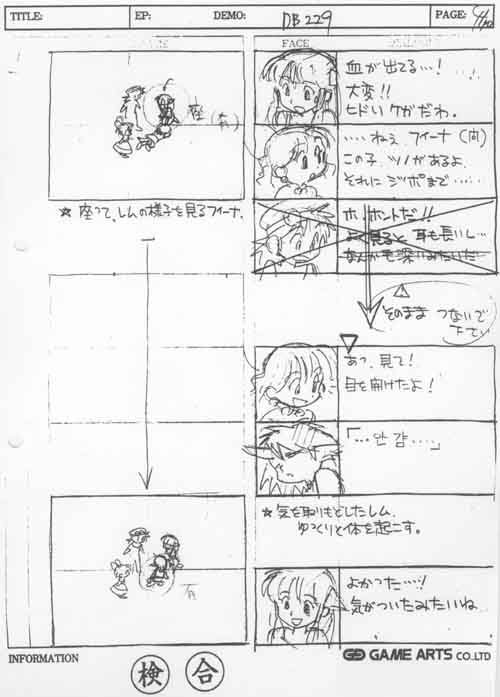 TITLE:
EP:
DEMO: DB229
PAGE:
FACE
血が出てる…!
大変!!
ヒドいケガだわ。
座
(有)
‥‥ねぇ、フィーナ(向)
この子、ツノがあるよ
それにシッポまで‥‥‥
☆ 座って、レムの様子を見るフィーナ。
ホ、ホントだ!!
よく見ると 耳も長いし…
なんか毛深いみたいだ
そのまま つないで
下さい
あっ、見て!
目を開けたよ!
☆ 気を取りもどしたレム、
ゆっくりと体を起こす。
有
よかった…!
気がついたみたいね
INFORMATION
GAME ARTS CO.,LTD
検 合